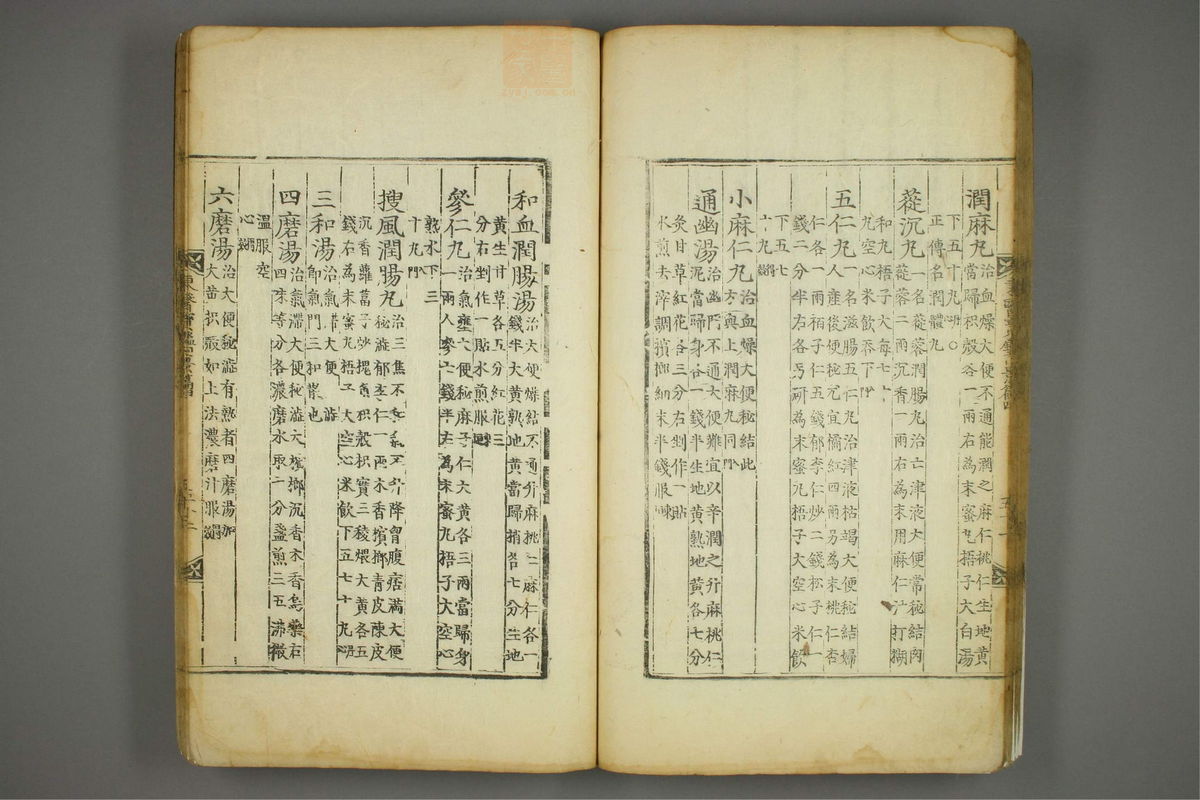 潤麻丸治血燥大便不通能潤之麻仁桃仁生地黃
當歸枳殼各一兩右為末蜜丸梧子大白湯
下五十丸○
正傳名潤體丸
蓯沉丸一名蓯蓉潤腸丸治亡津液大便常秘結肉
蓯蓉二兩沉香一兩右為末用麻仁汁打糊
和丸梧子大每七十
丸空心米飲吞下
五仁丸一名滋腸五仁丸治津液枯竭大便秘結婦
人產後便秘尤宜橘紅四兩另為末桃仁杏
仁各一兩栢子仁五錢郁李仁炒二錢松子仁一
錢二分半右各另研為末蜜丸梧子大空心米飲
下五七
十丸
小麻仁丸治血燥大便秘結此
方與上潤麻丸同
通幽湯治幽門不通大便難宜以辛潤之升麻桃仁
泥當歸身各一錢半生地黃熟地黃各七分
灸甘草紅花各三分右剉作一貼
水煎去滓調檳榔細末半錢服
和血潤腸湯治大便燥結不通升麻桃仁麻仁各一
錢半大黃熟地黃當歸梢各七分生地
黃生甘草各五分紅花三
分右剉作一貼水煎服
參仁丸治氣壅大便秘麻子仁大黃各三兩當歸身
一兩人參七錢半右為末蜜丸梧子大空心
熟水下三
十丸
搜風潤腸丸治三焦不和氣不升降胷腹痞滿大便
秘澁郁李仁一兩木香檳榔青皮陳皮
沉香蘿蔔子炒槐角枳殼枳實三稜煨大黃各五
錢右為末蜜丸梧子大空心米飲下五七十丸
三和湯治氣滯大便秘澁
卽氣門三和散也
四磨湯治氣滯大便秘澁大檳榔沉香木香烏藥右
四味等分各濃磨水取七分盞煎三五沸微
溫服空
心
六磨湯治大便秘澁有熱者四磨湯加
大黃枳殼如上法濃磨汁服